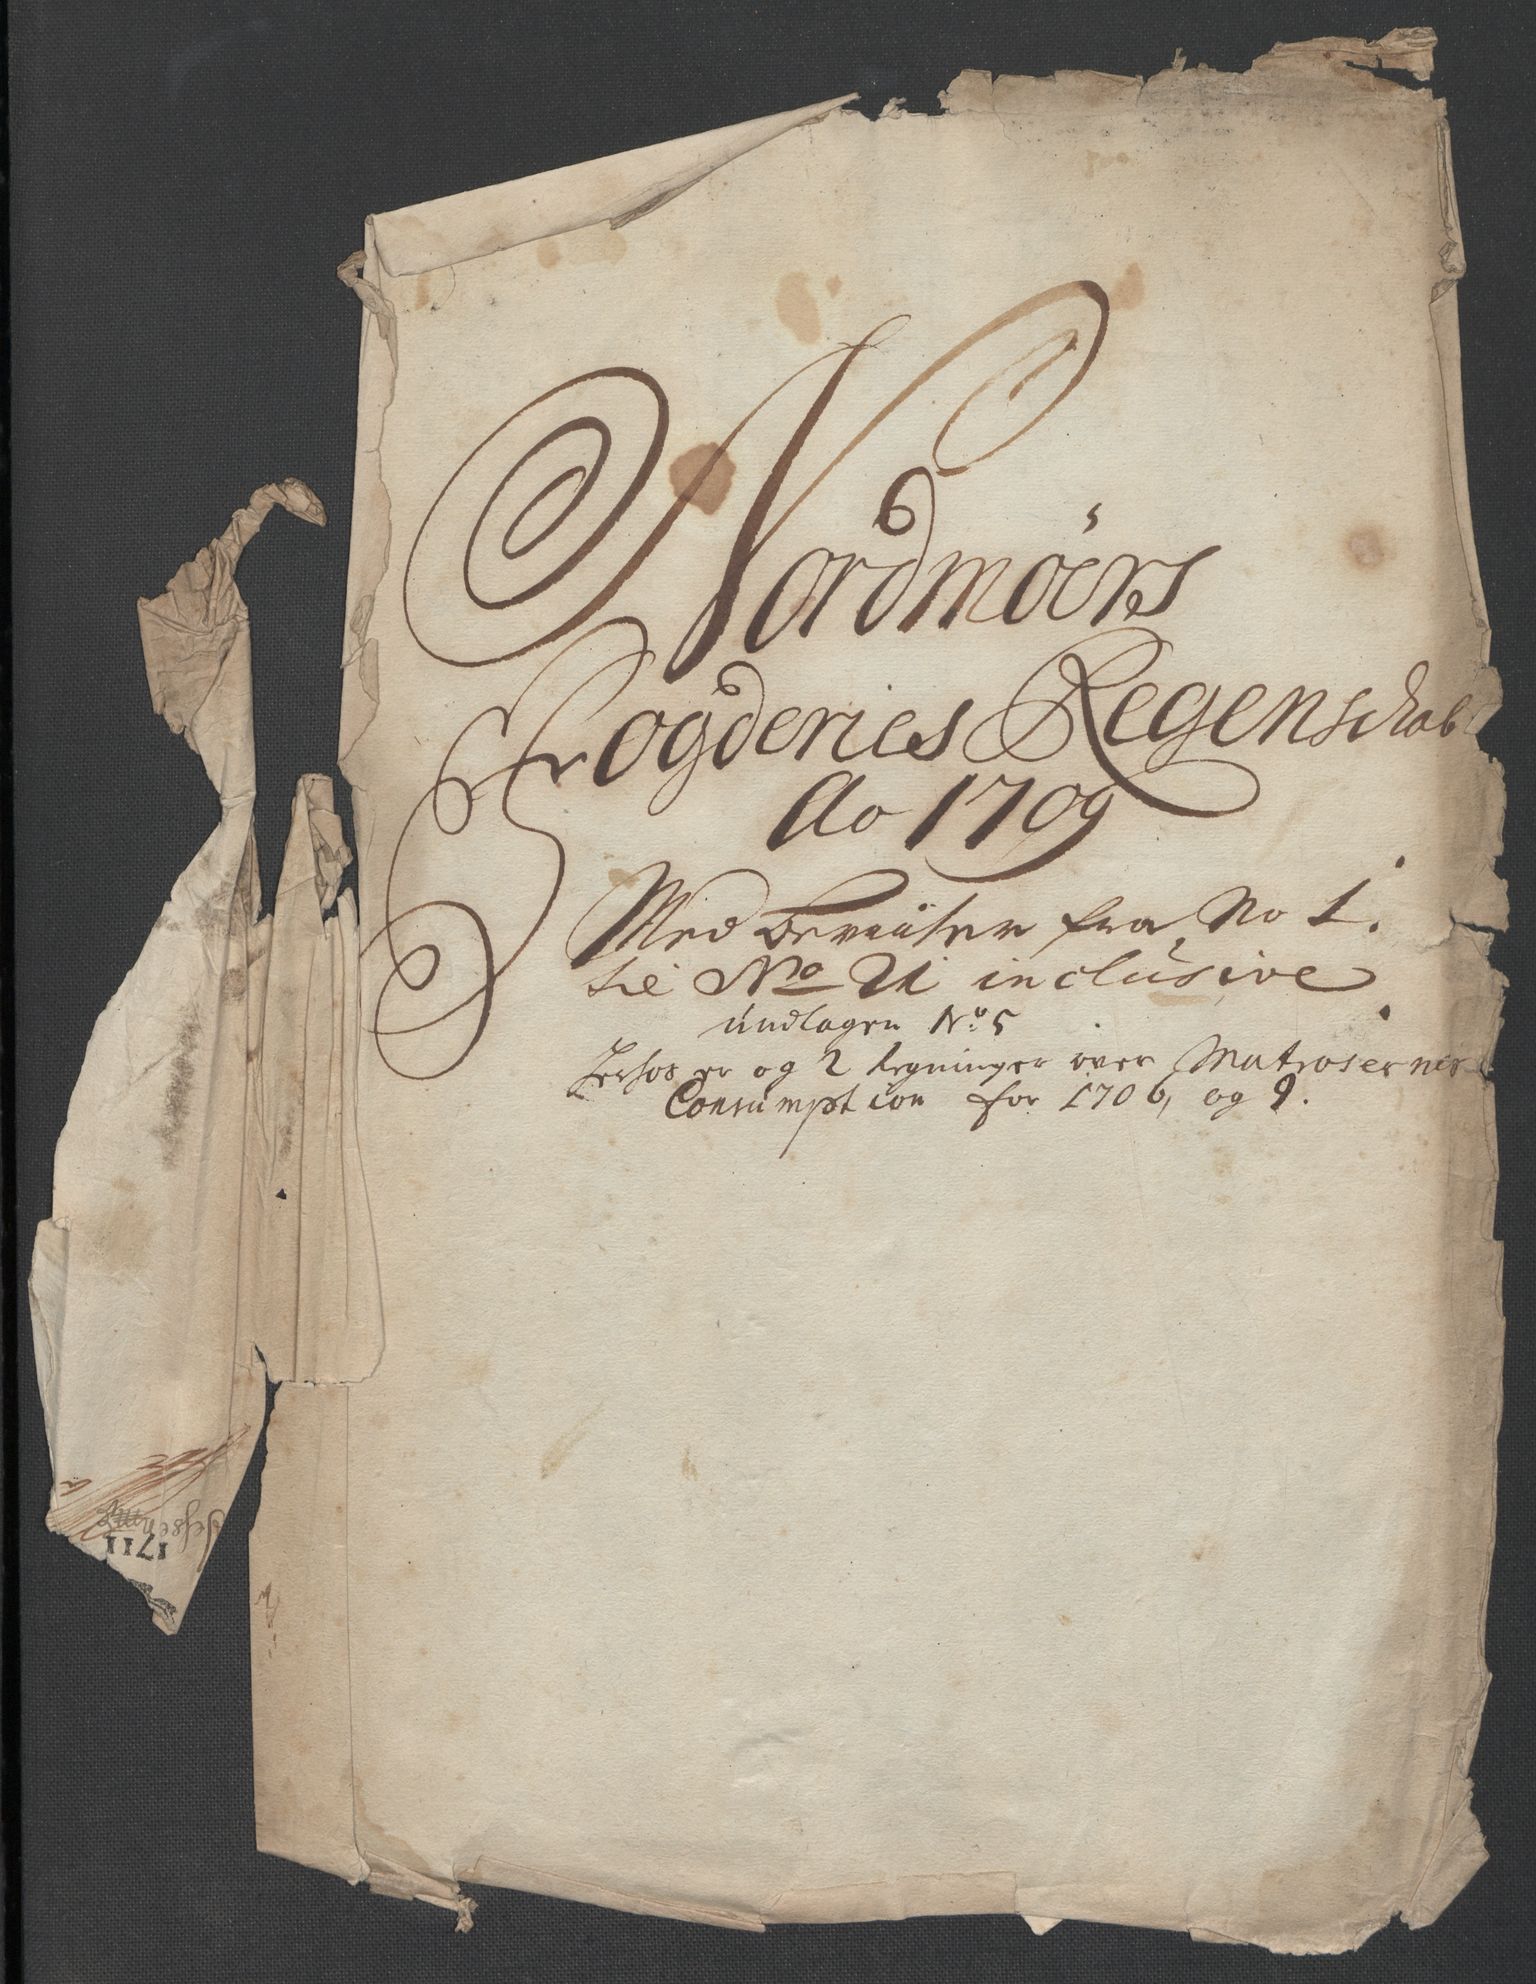 Nordmöers
Fogderies Regenskab
Ao 1709
Med beviiser fra No 1.
til No 21 inclusive
undtagen No 5
Herhos er og 2 Regninger over Matrosernes
Consumption for 1706, og 9.
1711